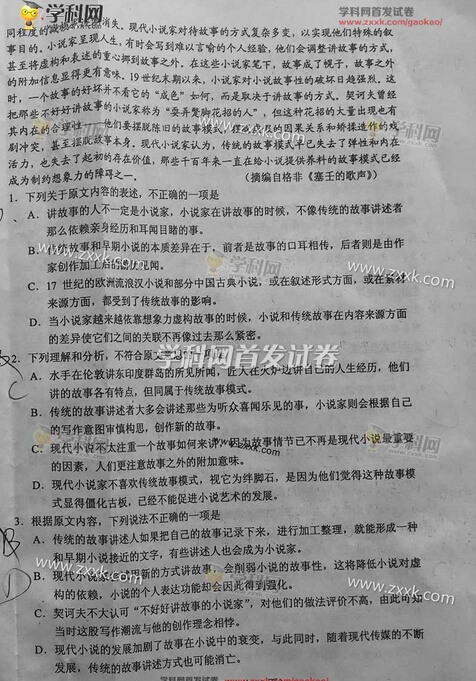 学科网首发试卷
www.zxxk.com/gaokao/
同程度的减弱，甚至消失。现代小说家对待故事的方式复杂多变，以实现他们特殊的叙
事目的。小说家呈现人生，有时会写到难以言喻的个人经验，他们会调整讲故事的方式，
甚至将虚构和表述的重心挪到故事之外。在这些小说家笔下，故事成了幌子，故事之外
的附加信息显得更有意味。19 世纪末期以来，小说家对小说故事性的破坏日趋强烈。这
时，一个故事的好坏并不看它的“成色”如何，而是取决于讲故事的方式。契诃夫曾经
把那些不好好讲故事的小说家称为“耍弄蹩脚花招的人”，但这种花招的大量出现也有
其内在的合理性——他们要摆脱陈旧的故事模式，
的因果关系和矫揉造作的戏
剧冲突，甚至摆脱故事本身。现代小说家认为，传统的故事模式早已失去了弹性和内在
活力，也失去了起初的存在价值，那些千百年来一直在给小说提供养料的故事模式已经
成为制约想象力的障碍。（摘编自格非《塞壬的歌声》）
1．下列关于原文内容的表述，不正确的一项是
A．讲故事的人不一定是小说家，小说家在讲故事的时候，不像传统的故事讲述者
那么依赖亲身经历和耳闻目睹的事。
B．传统故事和早期小说的本质差异在于，前者是故事的口耳相传，后者则是由作
家创作加工后的虚伪见闻。
C．17 世纪的欧洲流浪汉小说和部分中国古典小说，或在叙述形式方面，或在素材
来源方面，都受到了传统故事的影响。
D．当小说家越来越依靠想象力虚构故事的时候，小说和传统故事在内容来源方面
的差异使它们之间的关联不再像过去那么紧密。
2．下列理解和分析，不符合原文意思的一项是
A．水手在伦敦讲东印度群岛的所见所闻，匠人在火炉边讲自己的人生经历，他们
讲的故事各有特点，但同属于传统故事模式。
B．传统的故事讲述者大多会讲述那些为听众喜闻乐见的事，小说家则会根据自己
的写作意图审慎构思，创作新的故事。
C．现代小说不太注重一个故事如何来讲，因为故事情节已不再是现代小说最重要
的因素，人们更注意故事之外的附加意味。
D．现代小说家不喜欢传统故事模式，视它为绊脚石，是因为他们觉得这种故事模
式显得僵化古板，已经不能促进小说艺术的发展。
3．根据原文内容，下列说法不正确的一项是
A．传统的故事讲述人如果把自己的故事记录下来，进行加工整理，就能形成一种
和早期小说接近的文字，有些讲述人也会成为小说家。
B．现代小说家采用新的方式讲故事，会削弱小说的故事性，这将降低小说对虚
构的依赖，小说的个人表达功能却会因此得到强化。
C．契诃夫不大认可“不好好讲故事的小说家”，对他们的做法评价不高，由此可知
当时这股写作潮流与他的创作理念相悖。
D．现代小说的发展加剧了故事在小说中的衰变，与此同时，随着现代传媒的不断
发展，传统的故事讲述方式也可能消亡。
学科网首发试卷
www.zxxk.com/gaokao/